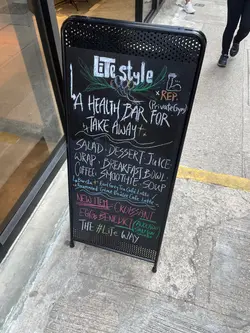 LiTE style
x REP.
(Private Gym)
"A HEALTH BAR FOR
TAKE AWAY"
SALAD · DESSERT JUICE
WRAP · BREAKFAST BOWL
COFFEE · SMOOTHIE · SOUP
NEW ITEM: CROISSANT
EGG BENEDICT
THE #LiTE WAY